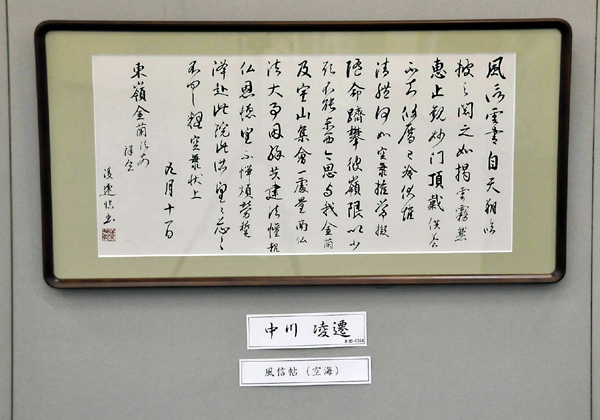 風信雲書自天翔臨
披之閲之如掲雲霧兼
恵止観妙門頂戴供養
不知攸厝已冷伏惟
法體何如空海推常擬
随命躋攀彼嶺限以少
願不能東西今思与我金蘭
及室山集會一處量商仏
法大事因縁共建法幢報
仏恩徳望不憚煩勞蹔
降赴此院此所望々々忩々
不具釋空海状上
九月十一日
東嶺金蘭法前
謹空
凌遷臨書
中川 凌遷
風信帖（空海）